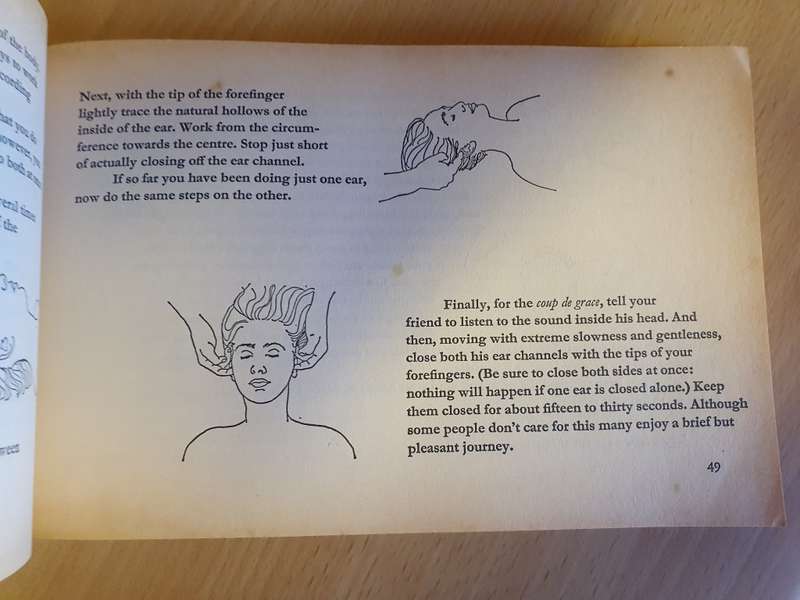 of the body,
ys to work
cording
hat you do
owever, you
o both at
veral times
f the
ween
Next, with the tip of the forefinger
lightly trace the natural hollows of the
inside of the ear. Work from the circum-
ference towards the centre. Stop just short
of actually closing off the ear channel.
If so far you have been doing just one ear,
now do the same steps on the other.
Finally, for the coup de grace, tell your
friend to listen to the sound inside his head. And
then, moving with extreme slowness and gentleness,
close both his ear channels with the tips of your
forefingers. (Be sure to close both sides at once:
nothing will happen if one ear is closed alone.) Keep
them closed for about fifteen to thirty seconds. Although
some people don't care for this many enjoy a brief but
pleasant journey.
49